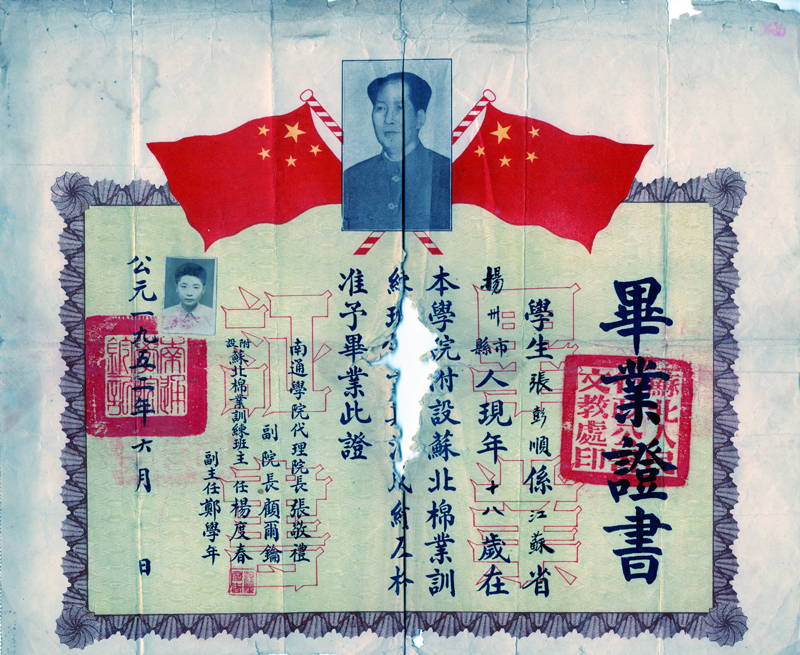 畢業證書
學生張彭順係江蘇省
揚州市縣人現年十八歲在
本學院附設蘇北棉業訓
練班成績及格
准予畢業此證
南通學院代理院長張敬禮
副院長顧爾鑰
附設蘇北棉業訓練班主任楊度春
副主任鄭學年
公元一九五二年六月 日
蘇北人民
文教處印
南通